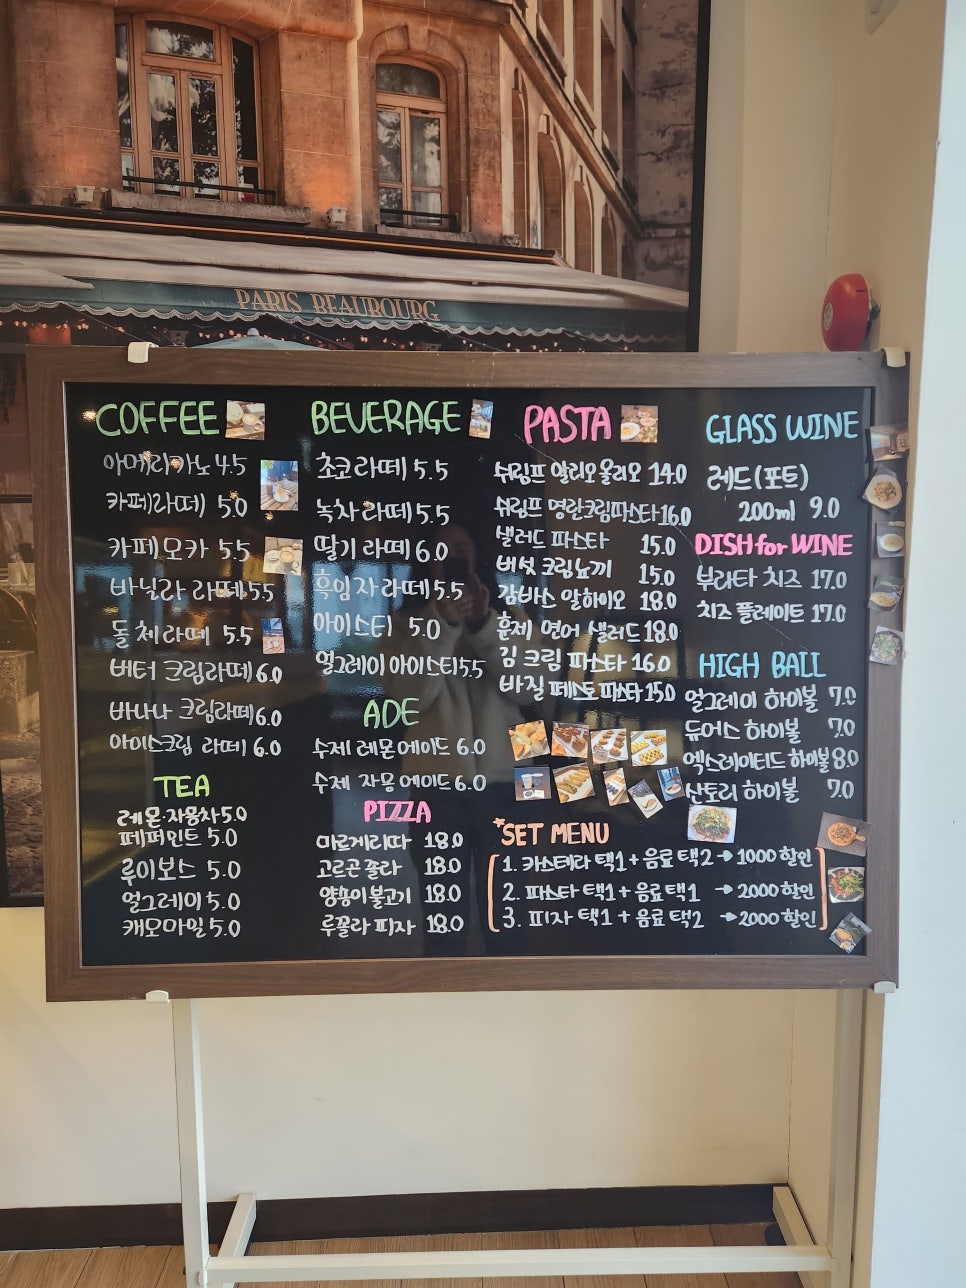 PARIS BEAUBOURG
COFFEE
아메리카노 4.5
카페라떼 5.0
카페모카 5.5
바닐라 라떼 5.5
돌체라떼 5.5
버터 크림라떼 6.0
바나나 크림라떼 6.0
아이스크림 라떼 6.0
TEA
레몬·자몽차 5.0
페퍼민트 5.0
루이보스 5.0
얼그레이 5.0
캐모마일 5.0
BEVERAGE
초코라떼 5.5
녹차라떼 5.5
딸기라떼 6.0
흑임자라떼 5.5
아이스티 5.0
얼그레이 아이스티 5.5
ADE
수제 레몬에이드 6.0
수제 자몽에이드 6.0
PIZZA
마르게리따 18.0
고르곤졸라 18.0
양송이불고기 18.0
루꼴라 피자 18.0
PASTA
쉬림프 알리오올리오 14.0
쉬림프 명란크림파스타 16.0
샐러드 파스타 15.0
버섯 크림뇨끼 15.0
감바스 알하이오 18.0
훈제 연어 샐러드 18.0
김 크림 파스타 16.0
바질 페스토 파스타 15.0
GLASS WINE
레드(포트)
200ml 9.0
DISH for WINE
부라타 치즈 17.0
치즈 플레이트 17.0
HIGH BALL
얼그레이 하이볼 7.0
듀어스 하이볼 7.0
엑스레이티드 하이볼 8.0
산토리 하이볼 7.0
*SET MENU
1. 카스테라 택1 + 음료 택2 → 1000 할인
2. 파스타 택1 + 음료 택1 → 2000 할인
3. 피자 택1 + 음료 택2 → 2000 할인